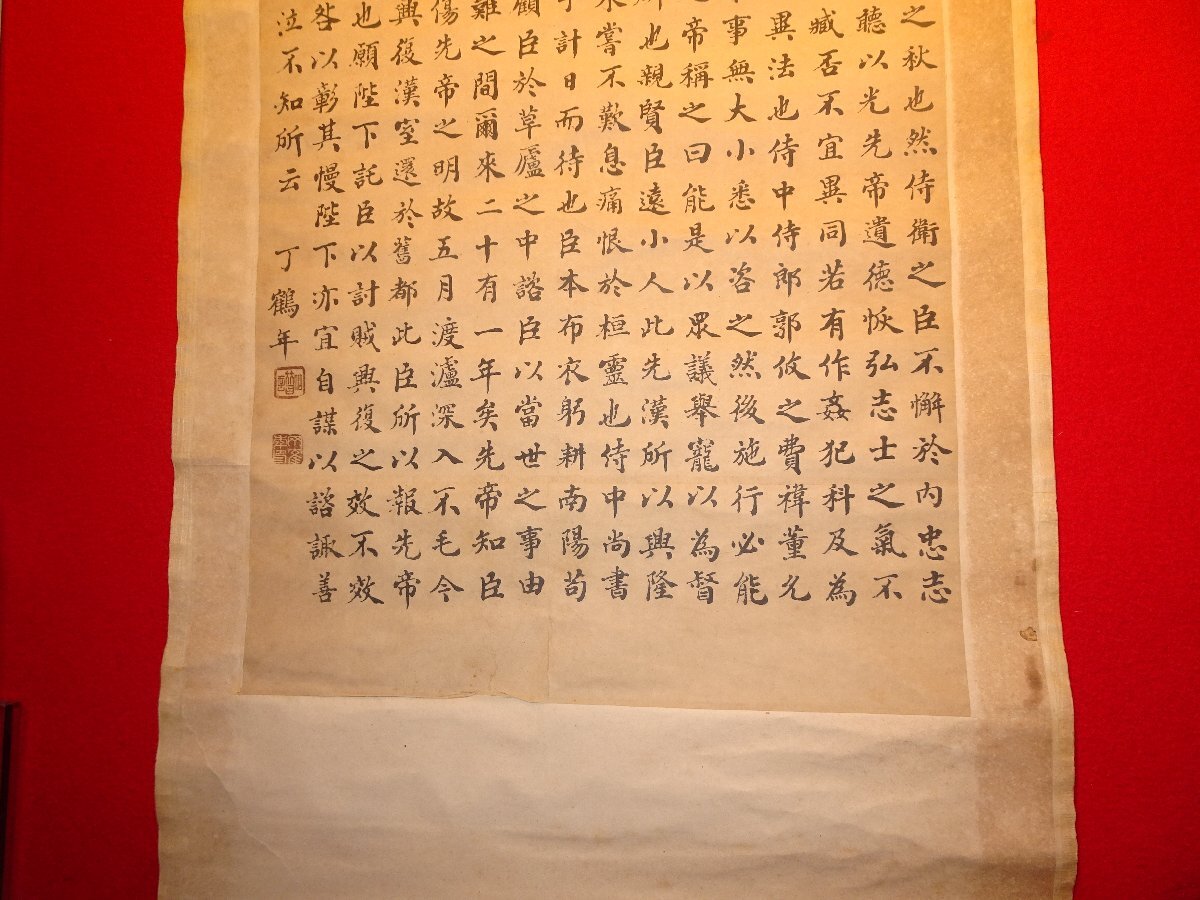 之秋也然侍衛之臣不懈於内忠志
聽以光先帝遺德恢弘志士之氣不
臧否不宜異同若有作姦犯科及為
異法也侍中侍郎郭攸之費禕董允
事無大小悉以咨之然後施行必能
帝稱之曰能是以眾議舉寵以為督
也親賢臣遠小人此先漢所以興隆
嘗不歎息痛恨於桓靈也侍中尚書
計日而待也臣本布衣躬耕南陽苟
顧臣於草廬之中諮臣以當世之事由
難之間爾來二十有一年矣先帝知臣
傷先帝之明故五月渡瀘深入不毛今
興復漢室還於舊都此臣所以報先帝
也願陛下託臣以討賊興復之效不效
咎以彰其慢陛下亦宜自謀以諮諏善
泣不知所云 丁鶴年